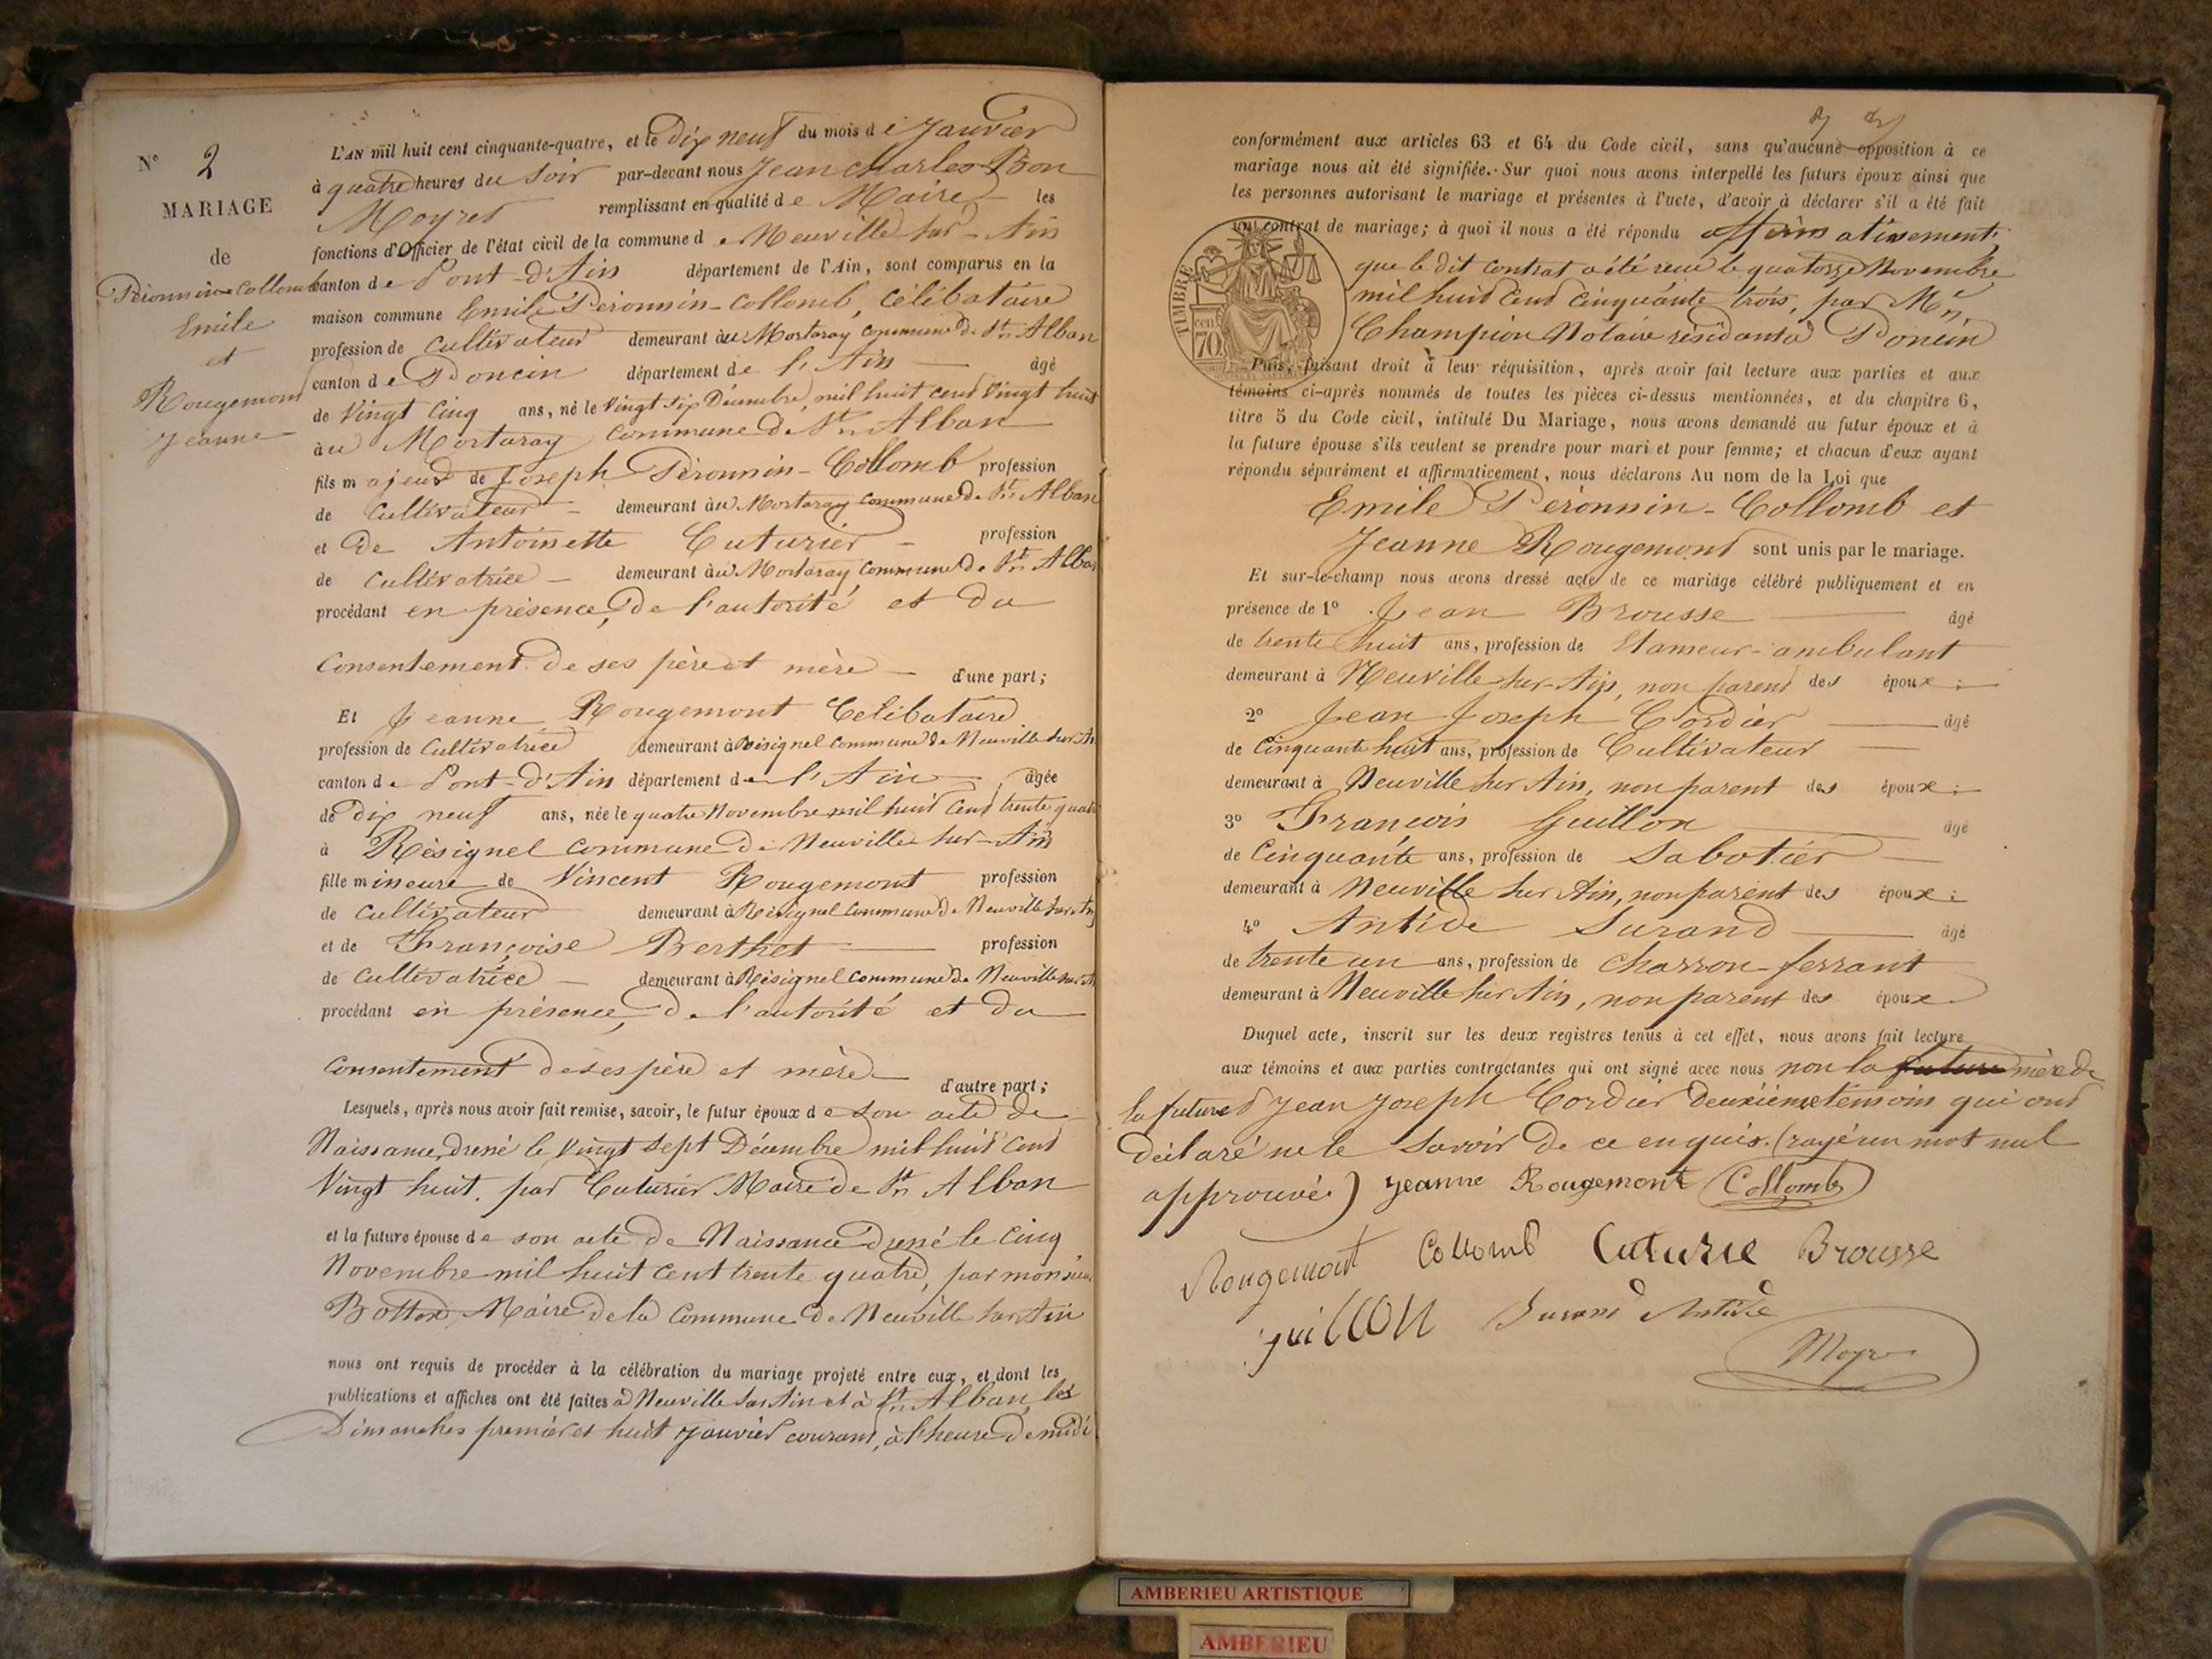 N° 2
MARIAGE
de
Péronnin-Collomb
Emile
et
Rougemont
Jeanne
L'AN mil huit cent cinquante-quatre, et le dix neuf du mois de Janvier
à quatre heures du soir par-devant nous Jean Charles Bon
Moyret remplissant en qualité de Maire les
fonctions d'Officier de l'état civil de la commune de Neuville sur-Ain
canton de Pont-d'Ain département de l'Ain, sont comparus en la
maison commune Emile Péronnin-Collomb, célibataire
profession de cultivateur demeurant au Mortaray commune de St Alban
canton de Poncin département de l'Ain âgé
de vingt cinq ans, né le vingt six Décembre mil huit cent vingt huit
au Mortaray commune de St Alban
fils majeur de Joseph Péronnin-Collomb profession
de cultivateur demeurant au Mortaray commune de St Alban
et de Antoinette Cuturier profession
de cultivatrice demeurant au Mortaray commune de St Alban
procédant en présence, de l'autorité et du
consentement de ses père et mère d'une part;
Et Jeanne Rougemont Celibataire
profession de cultivatrice demeurant à Résignel commune de Neuville sur Ain
canton de Pont-d'Ain département de l'Ain, âgée
de dix neuf ans, née le quatre Novembre mil huit cent trente quatre
à Résignel commune de Neuville sur-Ain
fille mineure de Vincent Rougemont profession
de cultivateur demeurant à Résignel commune de Neuville sur Ain
et de Françoise Berthet profession
de cultivatrice demeurant à Résignel commune de Neuville sur Ain
procédant en présence, de l'autorité et du
consentement de ses père et mère d'autre part;
Lesquels, après nous avoir fait remise, savoir, le futur époux de son acte de
Naissance dressé le vingt sept Décembre mil huit cent
vingt huit, par Cuturier Maire de St Alban
et la future épouse de son acte de Naissance dressé le cinq
Novembre mil huit cent trente quatre, par monsieur
Botton Maire de la commune de Neuville sur Ain
nous ont requis de procéder à la célébration du mariage projeté entre eux, et dont les
publications et affiches ont été faites à Neuville sur Ain et à St Alban, les
Dimanches premier et huit Janvier courant, à l'heure de midi
conformément aux articles 63 et 64 du Code civil, sans qu'aucune opposition à ce
mariage nous ait été signifiée. Sur quoi nous avons interpellé les futurs époux ainsi que
les personnes autorisant le mariage et présentes à l'acte, d'avoir à déclarer s'il a été fait
un contrat de mariage; à quoi il nous a été répondu affirmativement,
que le dit contrat a été reçu le quatorze Novembre
mil huit cent cinquante trois, par Me
Champion Notaire résidant à Poncin
TIMBRE
cen
70
Puis, faisant droit à leur réquisition, après avoir fait lecture aux parties et aux
témoins ci-après nommés de toutes les pièces ci-dessus mentionnées, et du chapitre 6,
titre 5 du Code civil, intitulé Du Mariage, nous avons demandé au futur époux et à
la future épouse s'ils veulent se prendre pour mari et pour femme; et chacun d'eux ayant
répondu séparément et affirmativement, nous déclarons Au nom de la Loi que
Emile Péronnin-Collomb et
Jeanne Rougemont sont unis par le mariage.
Et sur-le-champ nous avons dressé acte de ce mariage célébré publiquement et en
présence de 1° Jean Brousse âgé
de trente huit ans, profession de Etameur-ambulant
demeurant à Neuville sur-Ain, non parent des époux;
2° Jean Joseph Cordier âgé
de cinquante huit ans, profession de Cultivateur
demeurant à Neuville sur Ain, non parent des époux;
3° François Guillon âgé
de cinquante ans, profession de Sabotier
demeurant à Neuville sur Ain, non parent des époux;
4° Antide Surand âgé
de trente un ans, profession de charron-ferrant
demeurant à Neuville sur Ain, non parent des époux
Duquel acte, inscrit sur les deux registres tenus à cet effet, nous avons fait lecture
aux témoins et aux parties contractantes qui ont signé avec nous non la future mère de
la future et Jean Joseph Cordier deuxième témoin qui ont
déclaré ne le savoir de ce enquis. (rayé un mot nul
approuvé) Jeanne Rougemont Collomb
Rougemont Collomb Cuturie Brousse
guillon Surand Antide
Moyret
AMBERIEU ARTISTIQUE
AMBERIEU